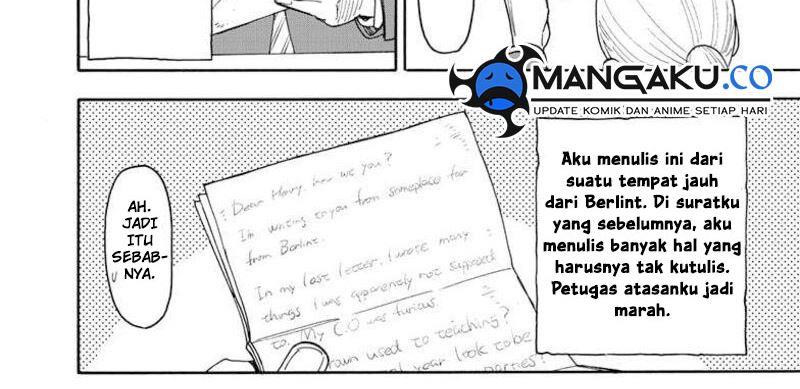 MANGAKU.CO
UPDATE KOMIK DAN ANIME SETIAP HARI
AH.
JADI
ITU
SEBAB-
NYA.
Dear Henry, how are you?
I'm writing to you from someplace far
from Berlint.
In my last letter, I wrote many
things I was apparently not supposed
to. My C.O was furious.
town used to teaching?
year look to be
parties?
Aku menulis ini dari
suatu tempat jauh
dari Berlint. Di suratku
yang sebelumnya, aku
menulis banyak hal yang
harusnya tak kutulis.
Petugas atasanku jadi
marah.